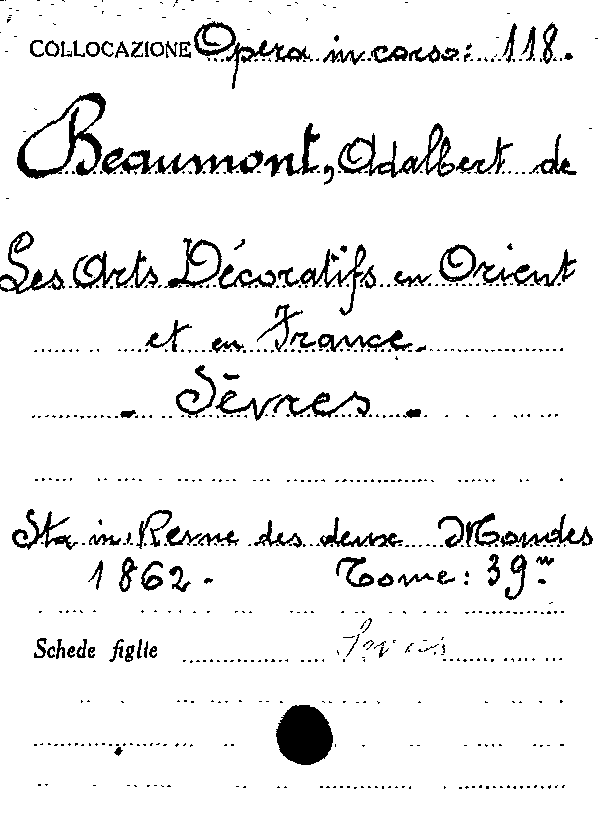 COLLOCAZIONE Opera in corso: 118.
Beaumont, Adalbert de
Les Arts Décoratifs en Orient
et en France.
- Sèvres -
Sta in: Revue des deux Mondes
1862. Tome: 39.m
Schede figlie Sevres